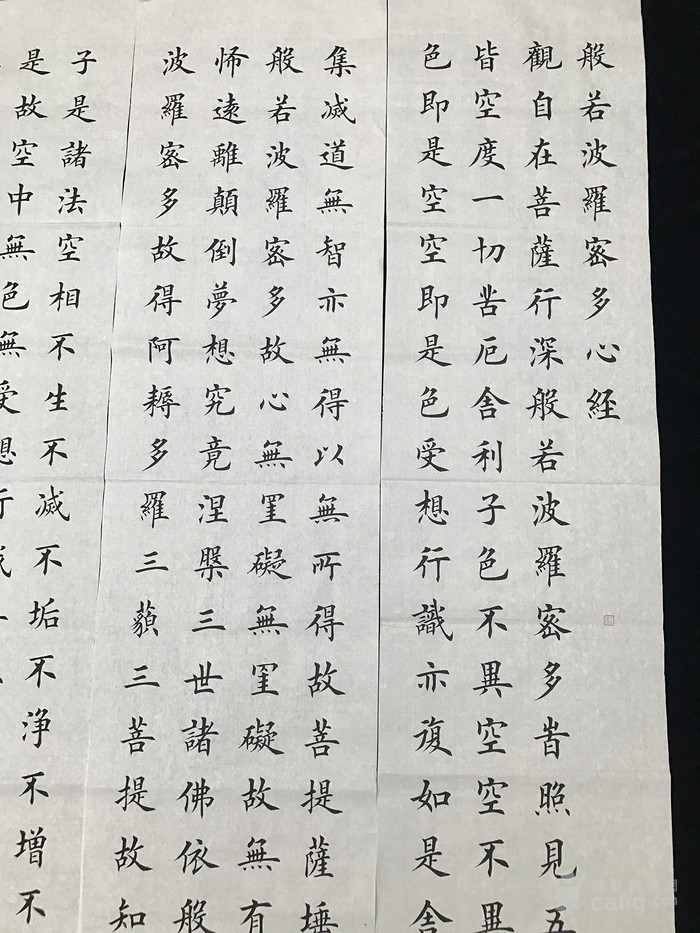 般若波羅密多心経
觀自在菩薩行深般若波羅密多旹照見五
皆空度一切苦厄舎利子色不異空空不異
色即是空空即是色受想行識亦復如是舎
集滅道無智亦無得以無所得故菩提薩埵
般若波羅密多故心無罣礙無罣礙故無有
怖遠離顛倒夢想究竟涅槃三世諸佛依般
波羅密多故得阿耨多羅三藐三菩提故知
子是諸法空相不生不滅不垢不浄不增不
是故空中無色無受想行